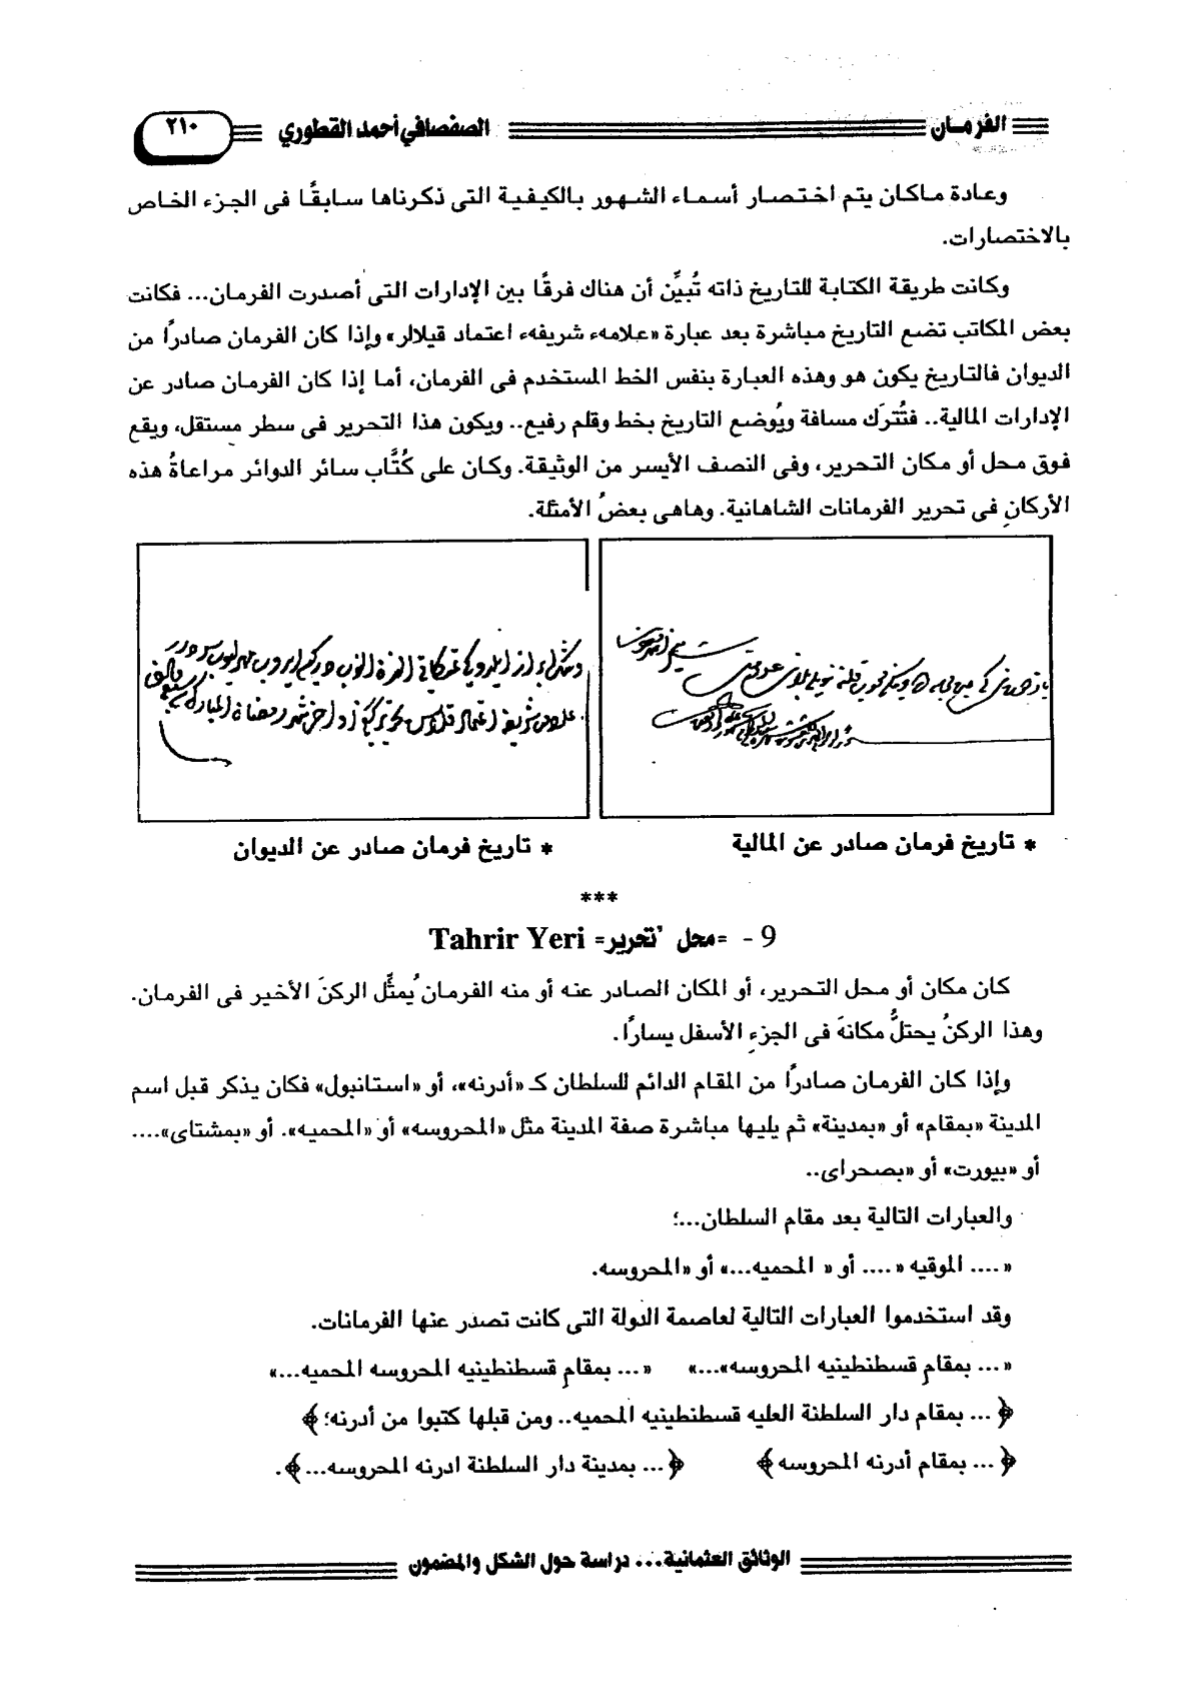 الفرمـان
الصفصافي أحمد القطوري
٢١٠
وعادة ماكان يتم اختصار أسماء الشهور بالكيفية التى ذكرناها سابقًا فى الجزء الخاص
بالاختصارات.
وكانت طريقة الكتابة للتاريخ ذاته تُبيِّن أن هناك فرقًا بين الإدارات التى أصدرت الفرمان... فكانت
بعض المكاتب تضع التاريخ مباشرة بعد عبارة «علامهء شريفهء اعتماد قيلالر» وإذا كان الفرمان صادرًا من
الديوان فالتاريخ يكون هو وهذه العبارة بنفس الخط المستخدم فى الفرمان، أما إذا كان الفرمان صادر عن
الإدارات المالية.. فتُترَك مسافة ويُوضع التاريخ بخط وقلم رفيع.. ويكون هذا التحرير فى سطر مستقل، ويقع
فوق محل أو مكان التحرير، وفى النصف الأيسر من الوثيقة. وكان على كُتَّاب سائر الدوائر مراعاةُ هذه
الأركانِ فى تحرير الفرمانات الشاهانية. وهاهى بعضُ الأمثلة.
* تاريخ فرمان صادر عن المالية
* تاريخ فرمان صادر عن الديوان
***
9 - =محل تحرير= Tahrir Yeri
كان مكان أو محل التحرير، أو المكان الصادر عنه أو منه الفرمان يُمثِّل الركنَ الأخير فى الفرمان.
وهذا الركنُ يحتلُّ مكانهَ فى الجزءِ الأسفل يسارًا.
وإذا كان الفرمان صادرًا من المقام الدائم للسلطان كـ «أدرنه»، أو «استانبول» فكان يذكر قبل اسم
المدينة «بمقام» أو «بمدينة» ثم يليها مباشرة صفة المدينة مثل «المحروسه» أو «المحميه». أو «بمشتاى»....
أو «بيورت» أو «بصحراى..
والعبارات التالية بعد مقام السلطان...؛
« .... الموقيه « .... أو « المحميه...» أو «المحروسه.
وقد استخدموا العبارات التالية لعاصمة الدولة التى كانت تصدر عنها الفرمانات.
« ... بمقامِ قسطنطينيه المحروسه»...» « ... بمقامِ قسطنطينيه المحروسه المحميه...»
﴿ ... بمقام دار السلطنة العليه قسطنطينيه المحميه.. ومن قبلها كتبوا من أدرنه؛ ﴾
﴿ ... بمقام أدرنه المحروسه ﴾ ﴿ ... بمدينة دار السلطنة ادرنه المحروسه...﴾.
الوثائق العثمانية... دراسة حول الشكل والمضمون